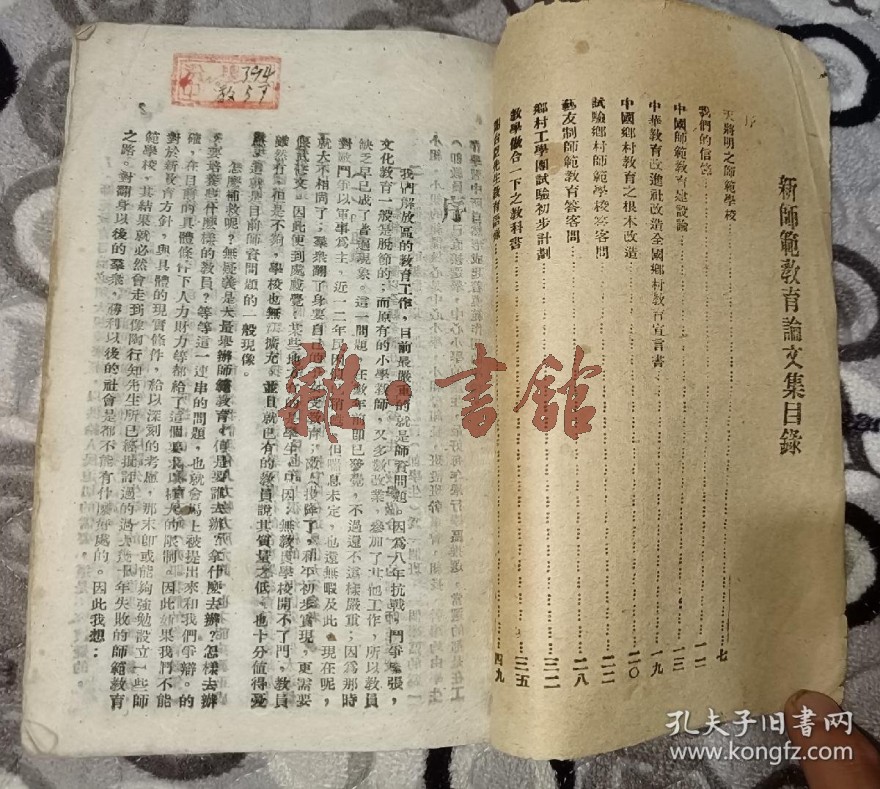 新師範教育論文集目錄
序
天將明之師範學校……七
我們的信條……一二
中國師範教育建設論……一三
中華教育改進社改造全國鄉村教育宣言書……一九
中國鄉村教育之根本改造……二〇
試驗鄉村師範學校答客問……二二
藝友制師範教育答客問……二八
鄉村工學團試驗初步計劃……三二
教學做合一下之教科書……三五
四九
序
我們解放區的教育工作，目前最嚴重的就是師資問題。因爲八年抗戰，鬥爭緊張，
文化教育一般是脫節的，而原有的小學教師，又多數改業，參加了其他工作，所以教員
缺乏早已成了普遍現象。這一問題，在數年前即已發覺，不過還不這樣嚴重；因爲那時
對敵鬥爭以軍事爲主，近一二年
但喘息未定，也還無暇及此。現在呢，
就大不相同了；羣衆翻了身要自己的
敵人投降了，和平初步實現，更需要
偃武修文。因此便到處感覺，某些地方
無教員學校開不了門，教員
雖然有，但是不夠，學校也無
擴充。並且就已有的教員說其質量之低，也十分值得憂
這就是目前師資問題的一般現像。
怎麼補救呢？無疑義是大量舉辦師範教育。但是要誰去辦？拿什麼去辦？怎樣去辦
要培養些什麼樣的教員？等等這一連串的問題，也就會馬上被提出來和我們爭辯。的
確，在目前的具體條件下人力財力等都給了這個要求以極大的限制。因此如果我們不能
對於新教育方針，與具體的現實條件，給以深刻的考慮，那末即或能夠強勉設立一些師
範學校，其結果就必然會走到像陶行知先生所已經批評過的過去幾十年失敗的師範教育
之路。對翻身以後的羣衆，勝利以後的社會是都不能有什麼好處的。因此我想：
394
教57
雜·書館
孔夫子旧书网
www.kongfz.com